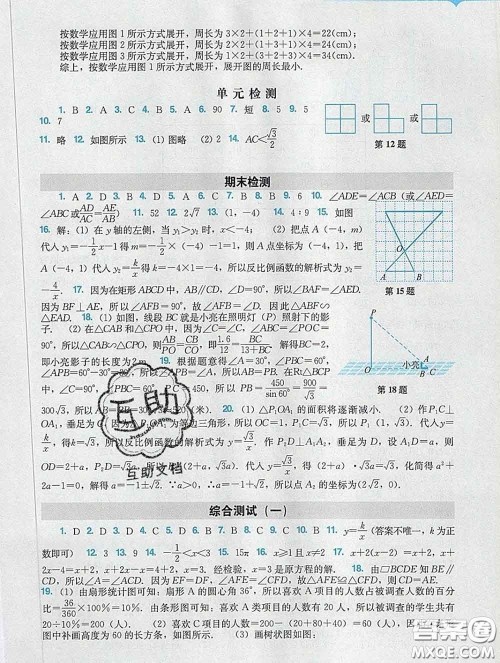 按数学应用图 1 所示方式展开，周长为 3×2+(1+2+1)×4=22(cm)；
按数学应用图 2 所示方式展开，周长为 3×2+(1+3+1)×4=26(cm)；
按数学应用图 3 所示方式展开，周长为 1×2+(3+2+3)×4=34(cm).
综上，按数学应用图 1 所示方式展开，展开图的周长最小.
单元检测
1. B 2. A 3. C 4. B 5. A 6. 90 7. 短 8. 5 9. 5
10. 7
11. 略 12. 如图所示 13. (1) 图略 (2) 2 14. AC<√3/2
或 或
第 12 题
期末检测
1. A 2. D 3. B 4. D 5. A 6. D 7. B 8. B 9. 6 10. ∠ADE=∠ACB (或∠AED=
∠ABC或AD/AC=AE/AB) 11. 52 12. 2√7 13. (1, −4) 14. 4∶9 15. 如图
16. 解：(1) 在 y 轴的左侧，当 y₁>y₂时，x<−4； (2) 把点 A(−4, m)
代入 y₁=−1/2x−1得 m=−1/2×(−4)−1=1，则 A 点坐标为(−4, 1)，把
A(−4, 1) 代入 y₂=k/x 得 k=−4×1=−4，所以反比例函数的解析式为 y₂=
−4/x. 17. 因为在矩形ABCD中，AB∥CD，∠D=90°，所以∠BAF=∠AED.
因为BF⊥AE，所以∠AFB=90°，故∠AFB=∠D. 因此△ABF∽
△EAD. 18. (1) 如图，线段 BC 就是小亮在照明灯 (P) 照射下的影
子. (2) 在△CAB和△CPO中，因为∠C=∠C，∠ABC=∠POC=90°，
所以△CAB∽△CPO，所以AB/PO=CB/CO，即1.6/12=BC/(13+BC). 解得BC=2，
即小亮影子的长度为 2 m. 19. 根据题意得∠A=30°，∠PBC=60°，所以
∠APB=60°−30°=30°，所以 在Rt△BCP
中，∠C=90°，∠PBC=60°，PC=450，所以PB=450/sin60°=900/√3=
300√3，所以 20. (1) △P₁OA₁ 的面积将逐渐减小. (2) 作P₁C⊥
OA₁，垂足为C，因为△P₁OA₁为等边三角形，所以 代入 y=
k/x，得k=√3，所以反比例函数的解析式为y=√3/x. 作P₂D⊥A₁A₂，垂足为 D，设A₁D=a，则
OD=2+a，P₂D=√3a，所以P₂(2+a, √3a). 代入y=√3/x，得(2+a)·√3a=√3，化简得 a²+
2a−1=0，解得a=−1±√2. ∵a>0，∴a=−1+√2，所以点A₂的坐标为(2√2, 0).
第 15 题
第 18 题
小亮
互助
互助文档
综合测试（一）
1. D 2. D 3. B 4. A 5. D 6. B 7. B 8. C 9. B 10. B 11. y=k/x (答案不唯一，k 为正
数即可) 12. 3 13. 9 14. −1/2<x<3 15. 15° 16. x≥1且x≠2 17. x+2(x−2)=x+2，x+
2x−4=x+2，x+2x−x=2+4，2x=6，x=3. 经检验，x=3是原方程的解. 18. 由□BCDE知BE∥
CD，所以∠A=∠ACD. 因为EF=DF，∠AFE=∠CFD，所以△AFE≌△CFD，所以CD=AE.
19. (1) 由扇形统计图可知：扇形 A 的圆心角 36°，所以喜欢 A 项目的人数占被调查人数的百分
比=36/360×100%=10%. 由条形图可知：喜欢 A 类项目的人数有 20 人，所以被调查的学生共有
20÷10%=200(人). (2) 喜欢 C 项目的人数=200−(20+80+40)=60(人)，因此在条形
图中补画高度为 60 的长方条，如图所示. (3) 画树状图如图：
MXQE.COM